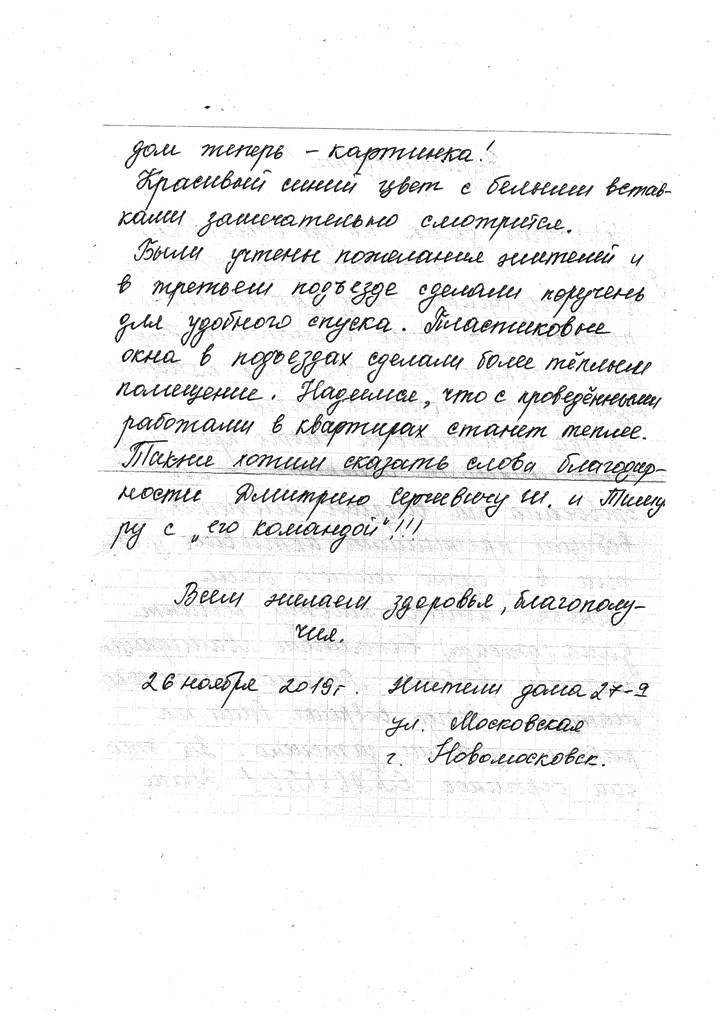 дом теперь – картинка!
Красивый синий цвет с белыми встав-
ками замечательно смотрится.
Были учтены пожелания жителей и
в третьем подъезде сделали поручень
для удобного спуска. Пластиковые
окна в подъездах сделали более тёплым
помещение. Надеемся, что с проведёнными
работами в квартирах станет теплее.
Также хотим сказать слова благодар-
ности Дмитрию Сергеевичу Ш. и Тиму
ру с „его командой“!!!
Всем желаем здоровья, благополу-
чия.
26 ноября 2019г. Жители дома 27-9
ул. Московская
г. Новомосковск.